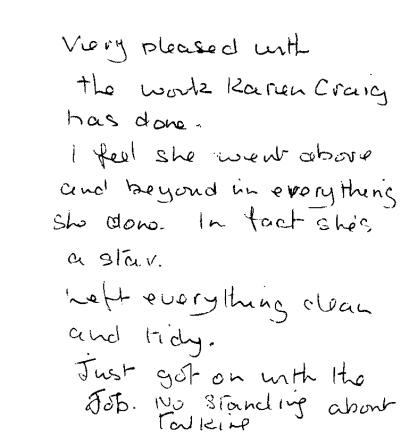 Very pleased with
the work Karen Craig
has done.
I feel she went above
and beyond in everything
she done. In fact she's
a star.
Left everything clean
and tidy.
Just got on with the
Job. No standing about
Talking